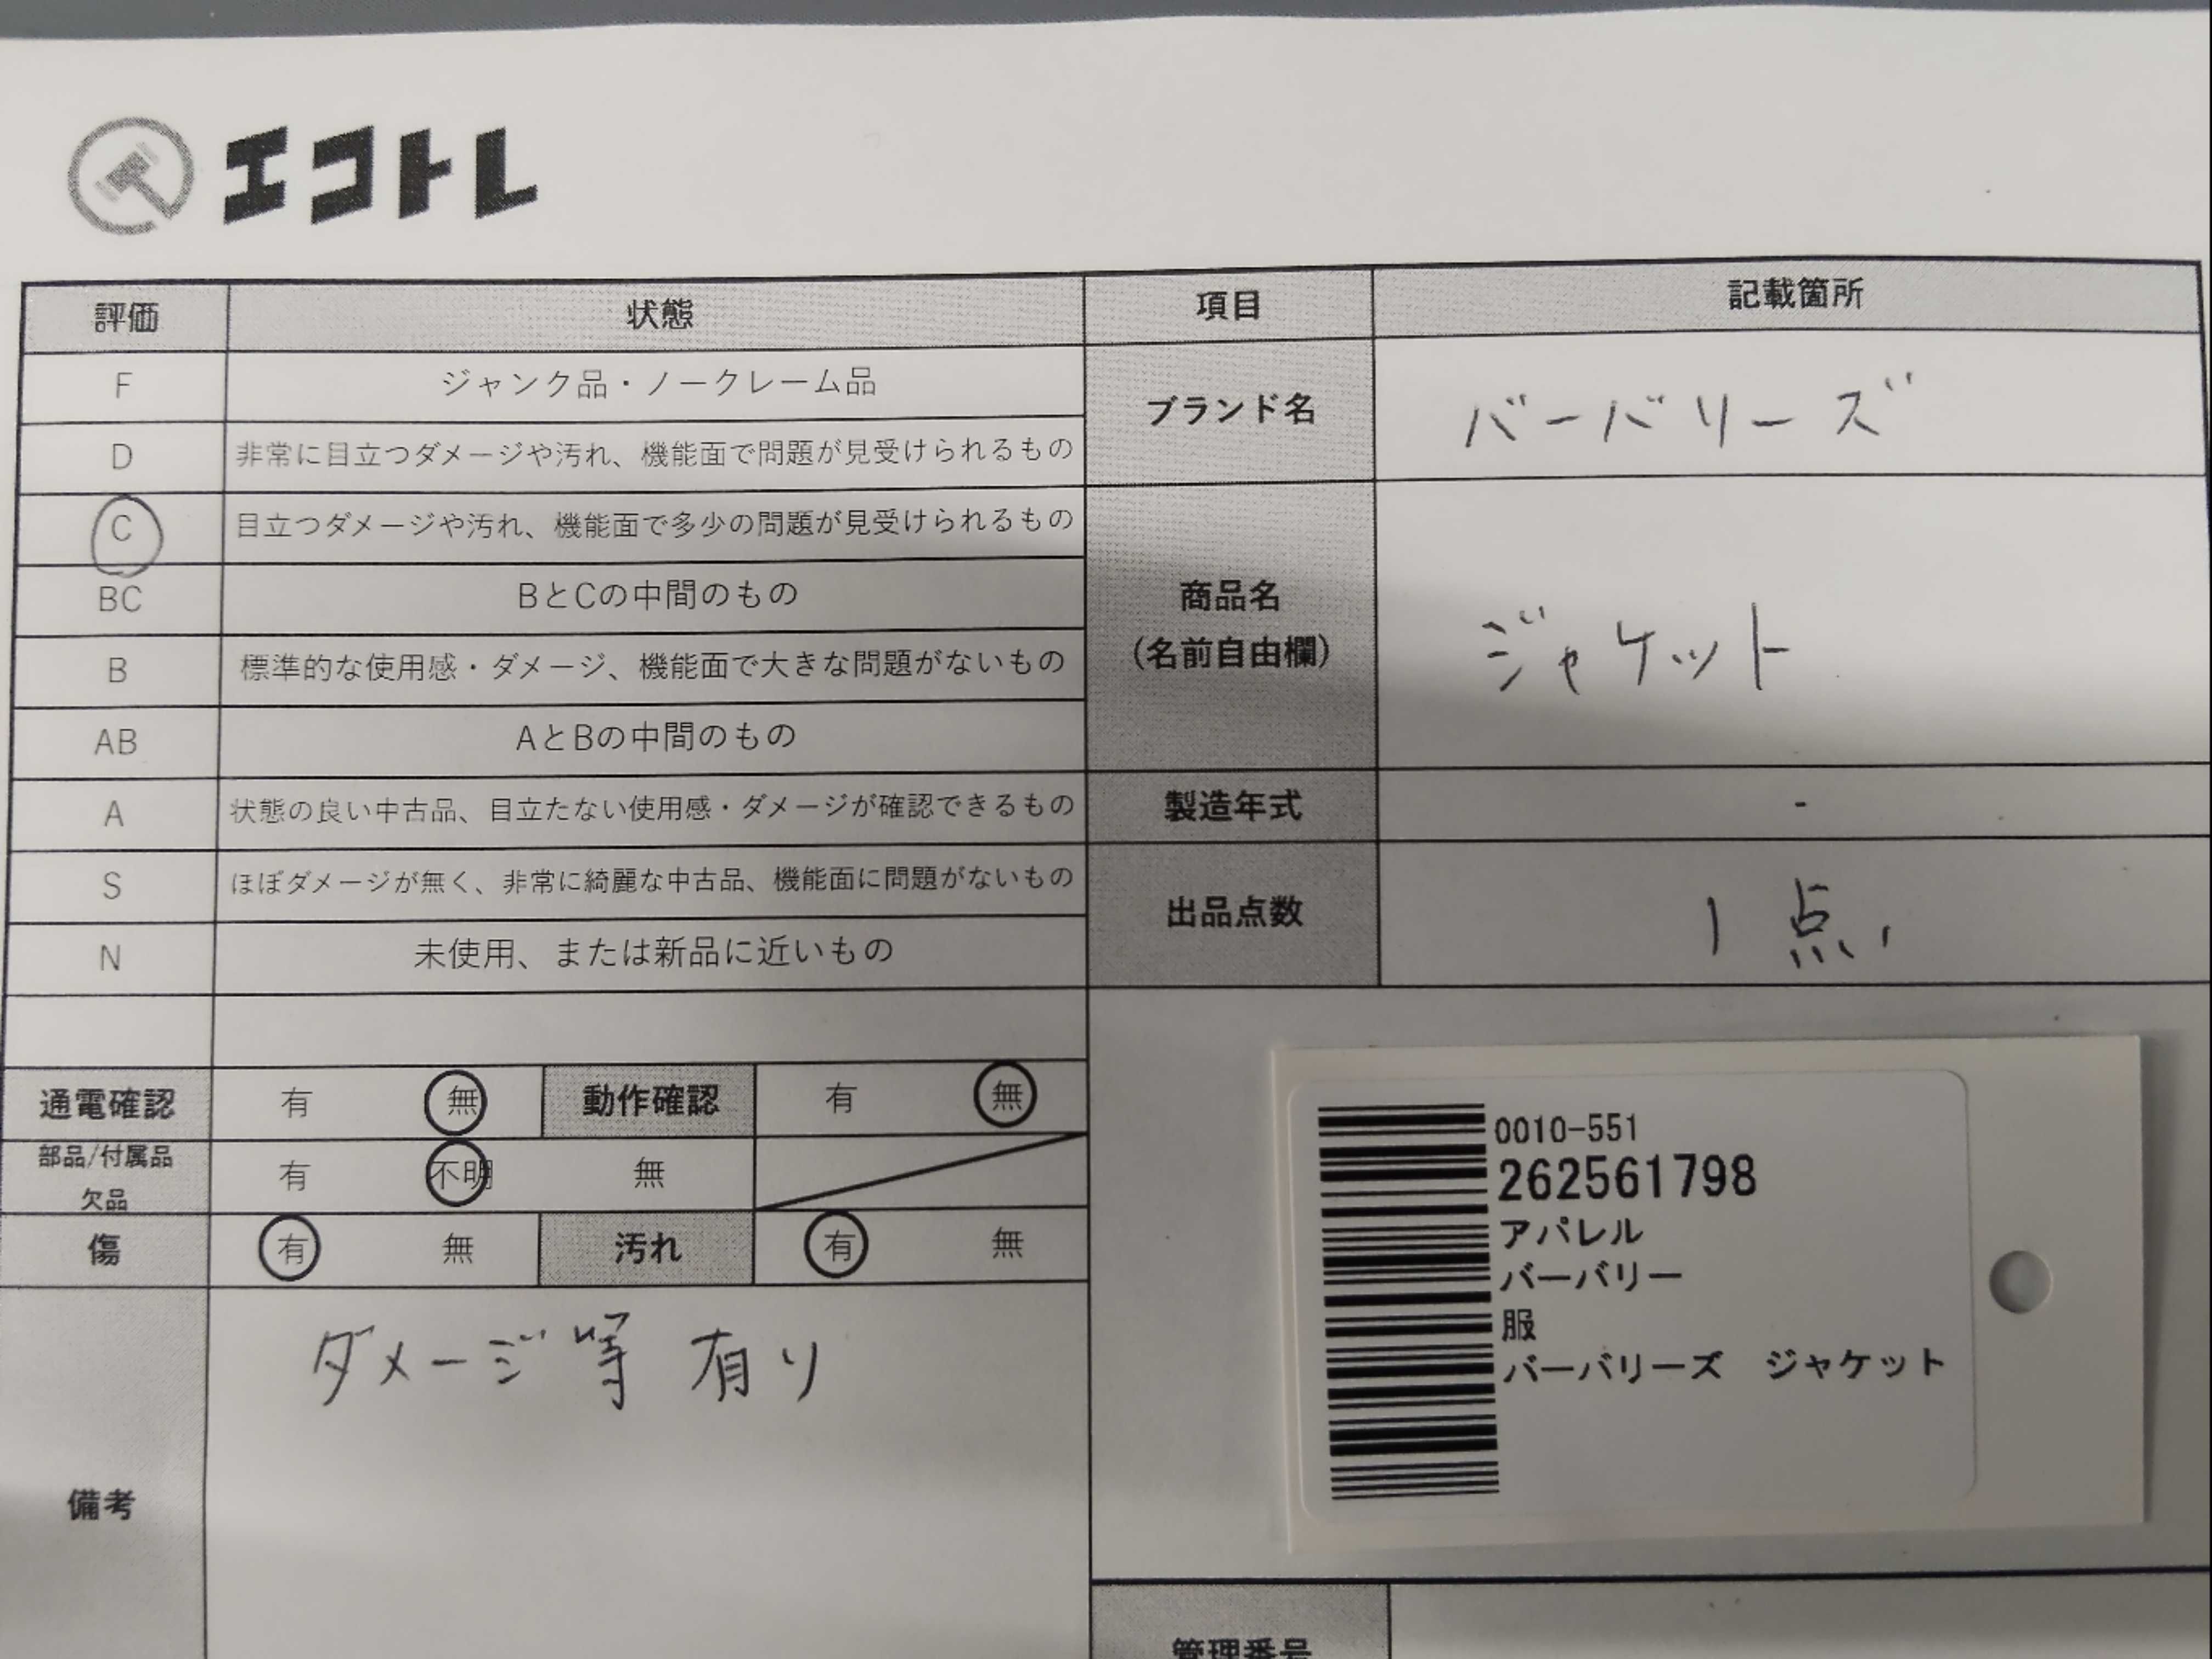 エコトレ
評価 状態 項目 記載箇所
F ジャンク品・ノークレーム品
D 非常に目立つダメージや汚れ、機能面で問題が見受けられるもの
ブランド名 バーバリーズ
C 目立つダメージや汚れ、機能面で多少の問題が見受けられるもの
BC BとCの中間のもの
B 標準的な使用感・ダメージ、機能面で大きな問題がないもの
商品名
(名前自由欄)
ジャケット
AB AとBの中間のもの
A 状態の良い中古品、目立たない使用感・ダメージが確認できるもの
製造年式 -
S ほぼダメージが無く、非常に綺麗な中古品、機能面に問題がないもの
出品点数 1点
N 未使用、または新品に近いもの
通電確認 有 無 動作確認 有 無
部品/付属品
欠品
有 不明 無
傷 有 無 汚れ 有 無
備考
ダメージ等 有り
0010-551
262561798
アパレル
バーバリー
服
バーバリーズ ジャケット
管理番号